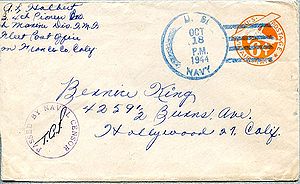 U. S.
OCT
18
P.M.
1944
NAVY
Pioneer
Marine Div. F.M.F.
Fleet Post Office
San Francisco Calif
PASSED BY NAVAL CENSOR
Bernice King
4259½ Burns Ave.
Hollywood 27. Calif.